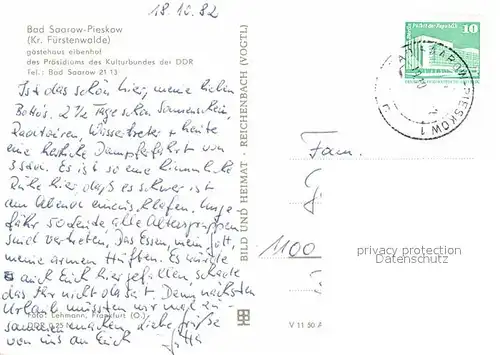 18.10.82
Bad Saarow-Pieskow
(Kr. Fürstenwalde)
gästehaus eibenhof
des Präsidiums des Kulturbundes der DDR
Tel.: Bad Saarow 21 13
Ist das schön hier, meine lieben
2 1/2 Tage schon Sonnenschein,
Wassertreter + heute
eine herrliche Dampferfahrt von
3 Std. Es ist so eine himmlische
Ruhe hier, daß es schwer ist
am Abend einzuschlafen. Unge-
fähr 50 Leute, alle Altersgruppen
sind vertreten. Das Essen, mein Gott,
meine armen Hüften. Es würde
auch Euch hier gefallen, schade
das Ihr nicht da seit. Den nächsten
Urlaub müssten wir mal zu-
sammen machen, liebe Grüße
von uns an Euch Jutta
Foto: Lehmann, Frankfurt (O.)
DDR 0,25 M
BILD UND HEIMAT · REICHENBACH (VOGTL)
V 11 50 A
Palast der Republik
10
DDR
SAAROW-PIESKOW 1
Fam.
1100
privacy protection
Datenschutz